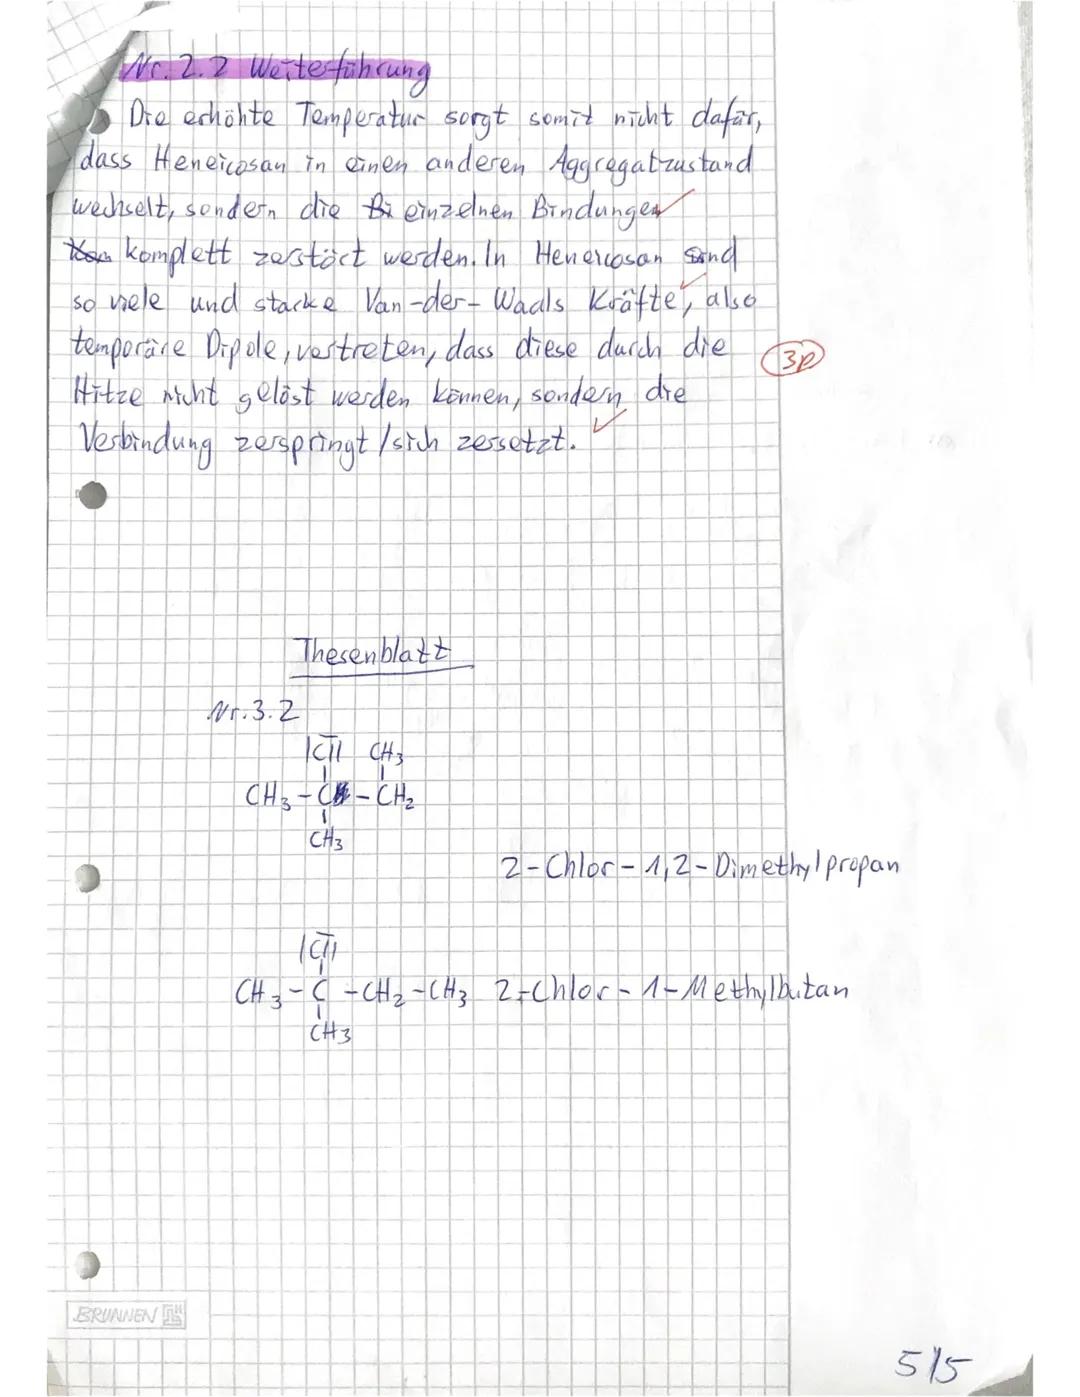 Nr. 2.2 Weiterführung
Die erhöhte Temperatur sorgt somit nicht dafür,
dass Heneicosan in einen anderen Aggregatzustand
wechselt, sondern die Bi einzelnen Bindungen
komplett zerstört werden. In Heneicosan sind
so viele und starke Van-der-Waals Kräfte, also
temporäre Dipole, vertreten, dass diese durch die
3p
Hitze nicht gelöst werden können, sondern die
Verbindung zerspringt/sich zersetzt.
Thesenblatt
Nr. 3.2
|Cl| CH3
CH3-C-CH2
CH3
2-Chlor-1,2-Dimethylpropan
|Cl|
CH3-C-CH2-CH3 2-Chlor-1-Methylbutan
CH3
BRUNNEN
5/5